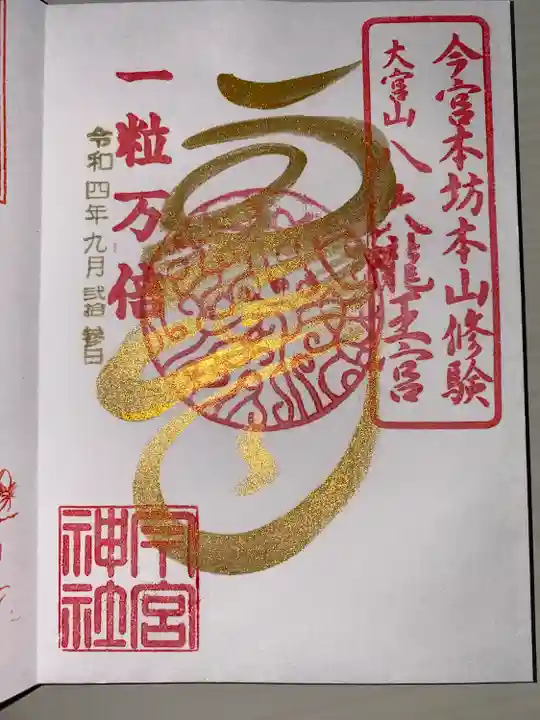 今宮本坊本山修験
大宮山
八大龍王宮
一粒万倍
令和四年九月弐拾参日
今宮
神社